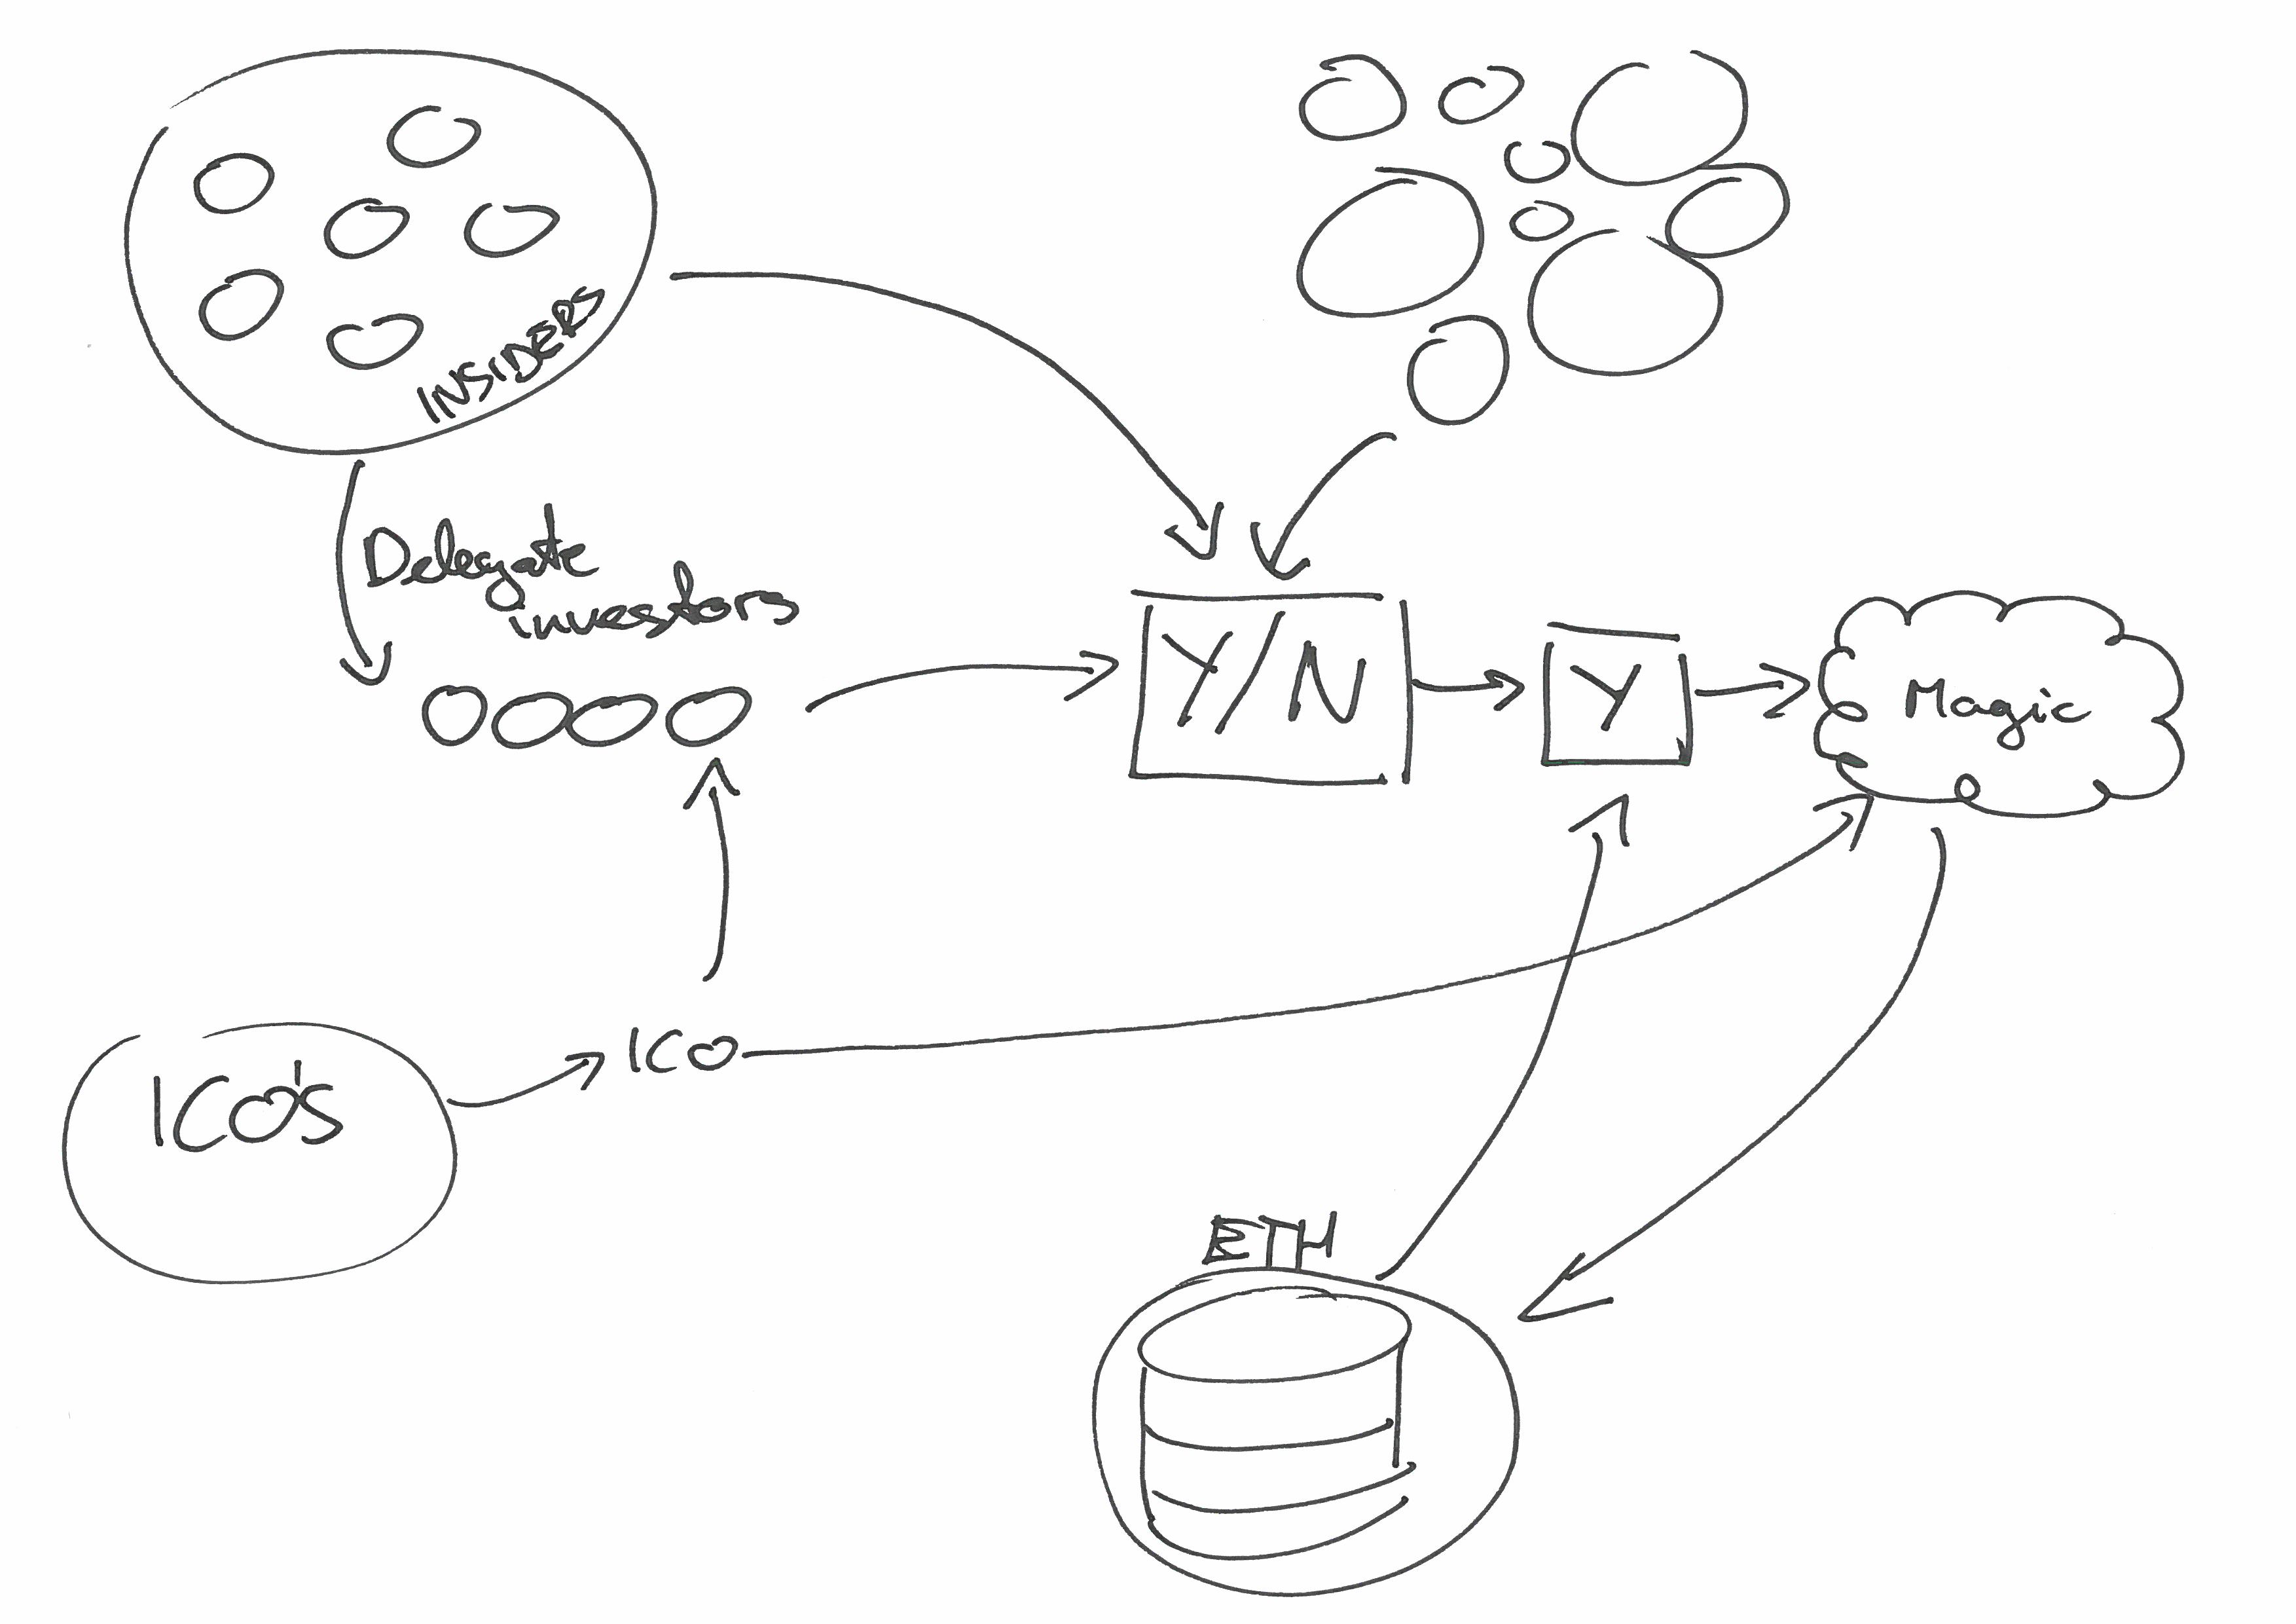 INSIDERS
Delegate
investors
Y/N
Y
Magic
ICO
ICO's
ETH